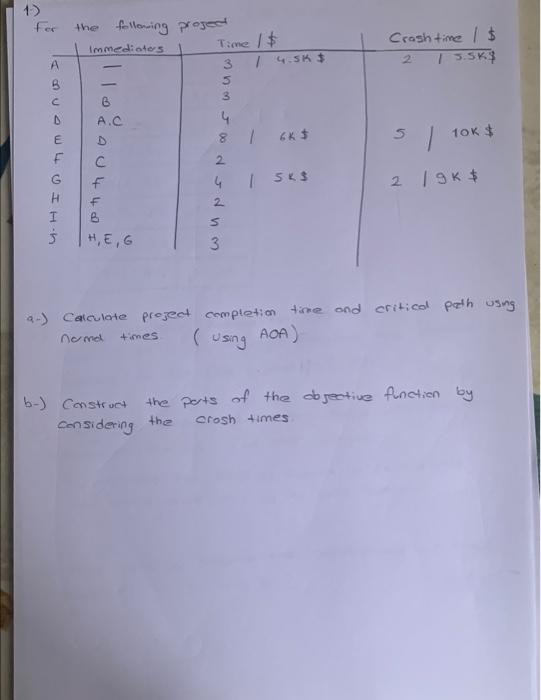 1-)
For the following project
Immediators Time / $ Crash time / $
A — 3 / 4.5K $ 2 / 5.5K $
B — 5
C B 3
D A.C 4
E D 8 / 6K $ 5 / 10K $
F C 2
G F 4 / 5K $ 2 / 9K $
H F 2
I B 5
j H, E, G 3
a-) Calculate project completion time and critical path using
normal times. (using AOA)
b-) Construct the parts of the objective function by
considering the crash times.